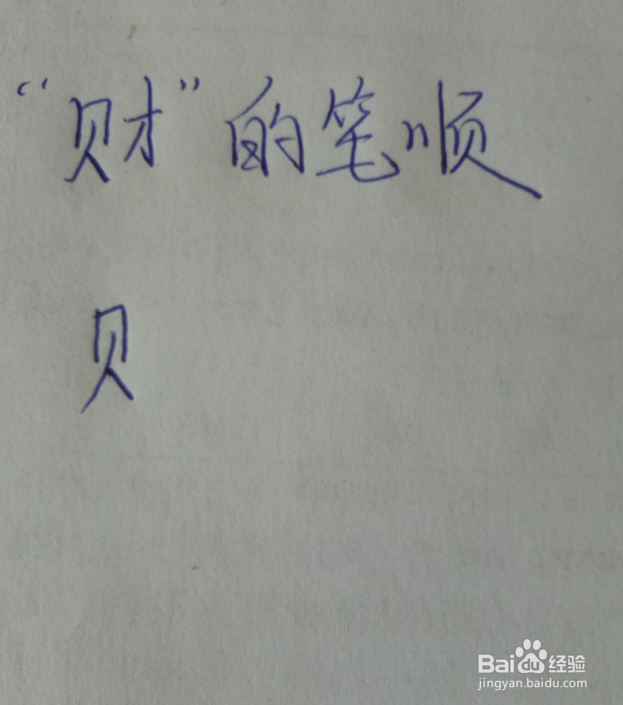 “财”的笔顺
贝
Baidu经验
jingyan.baidu.com